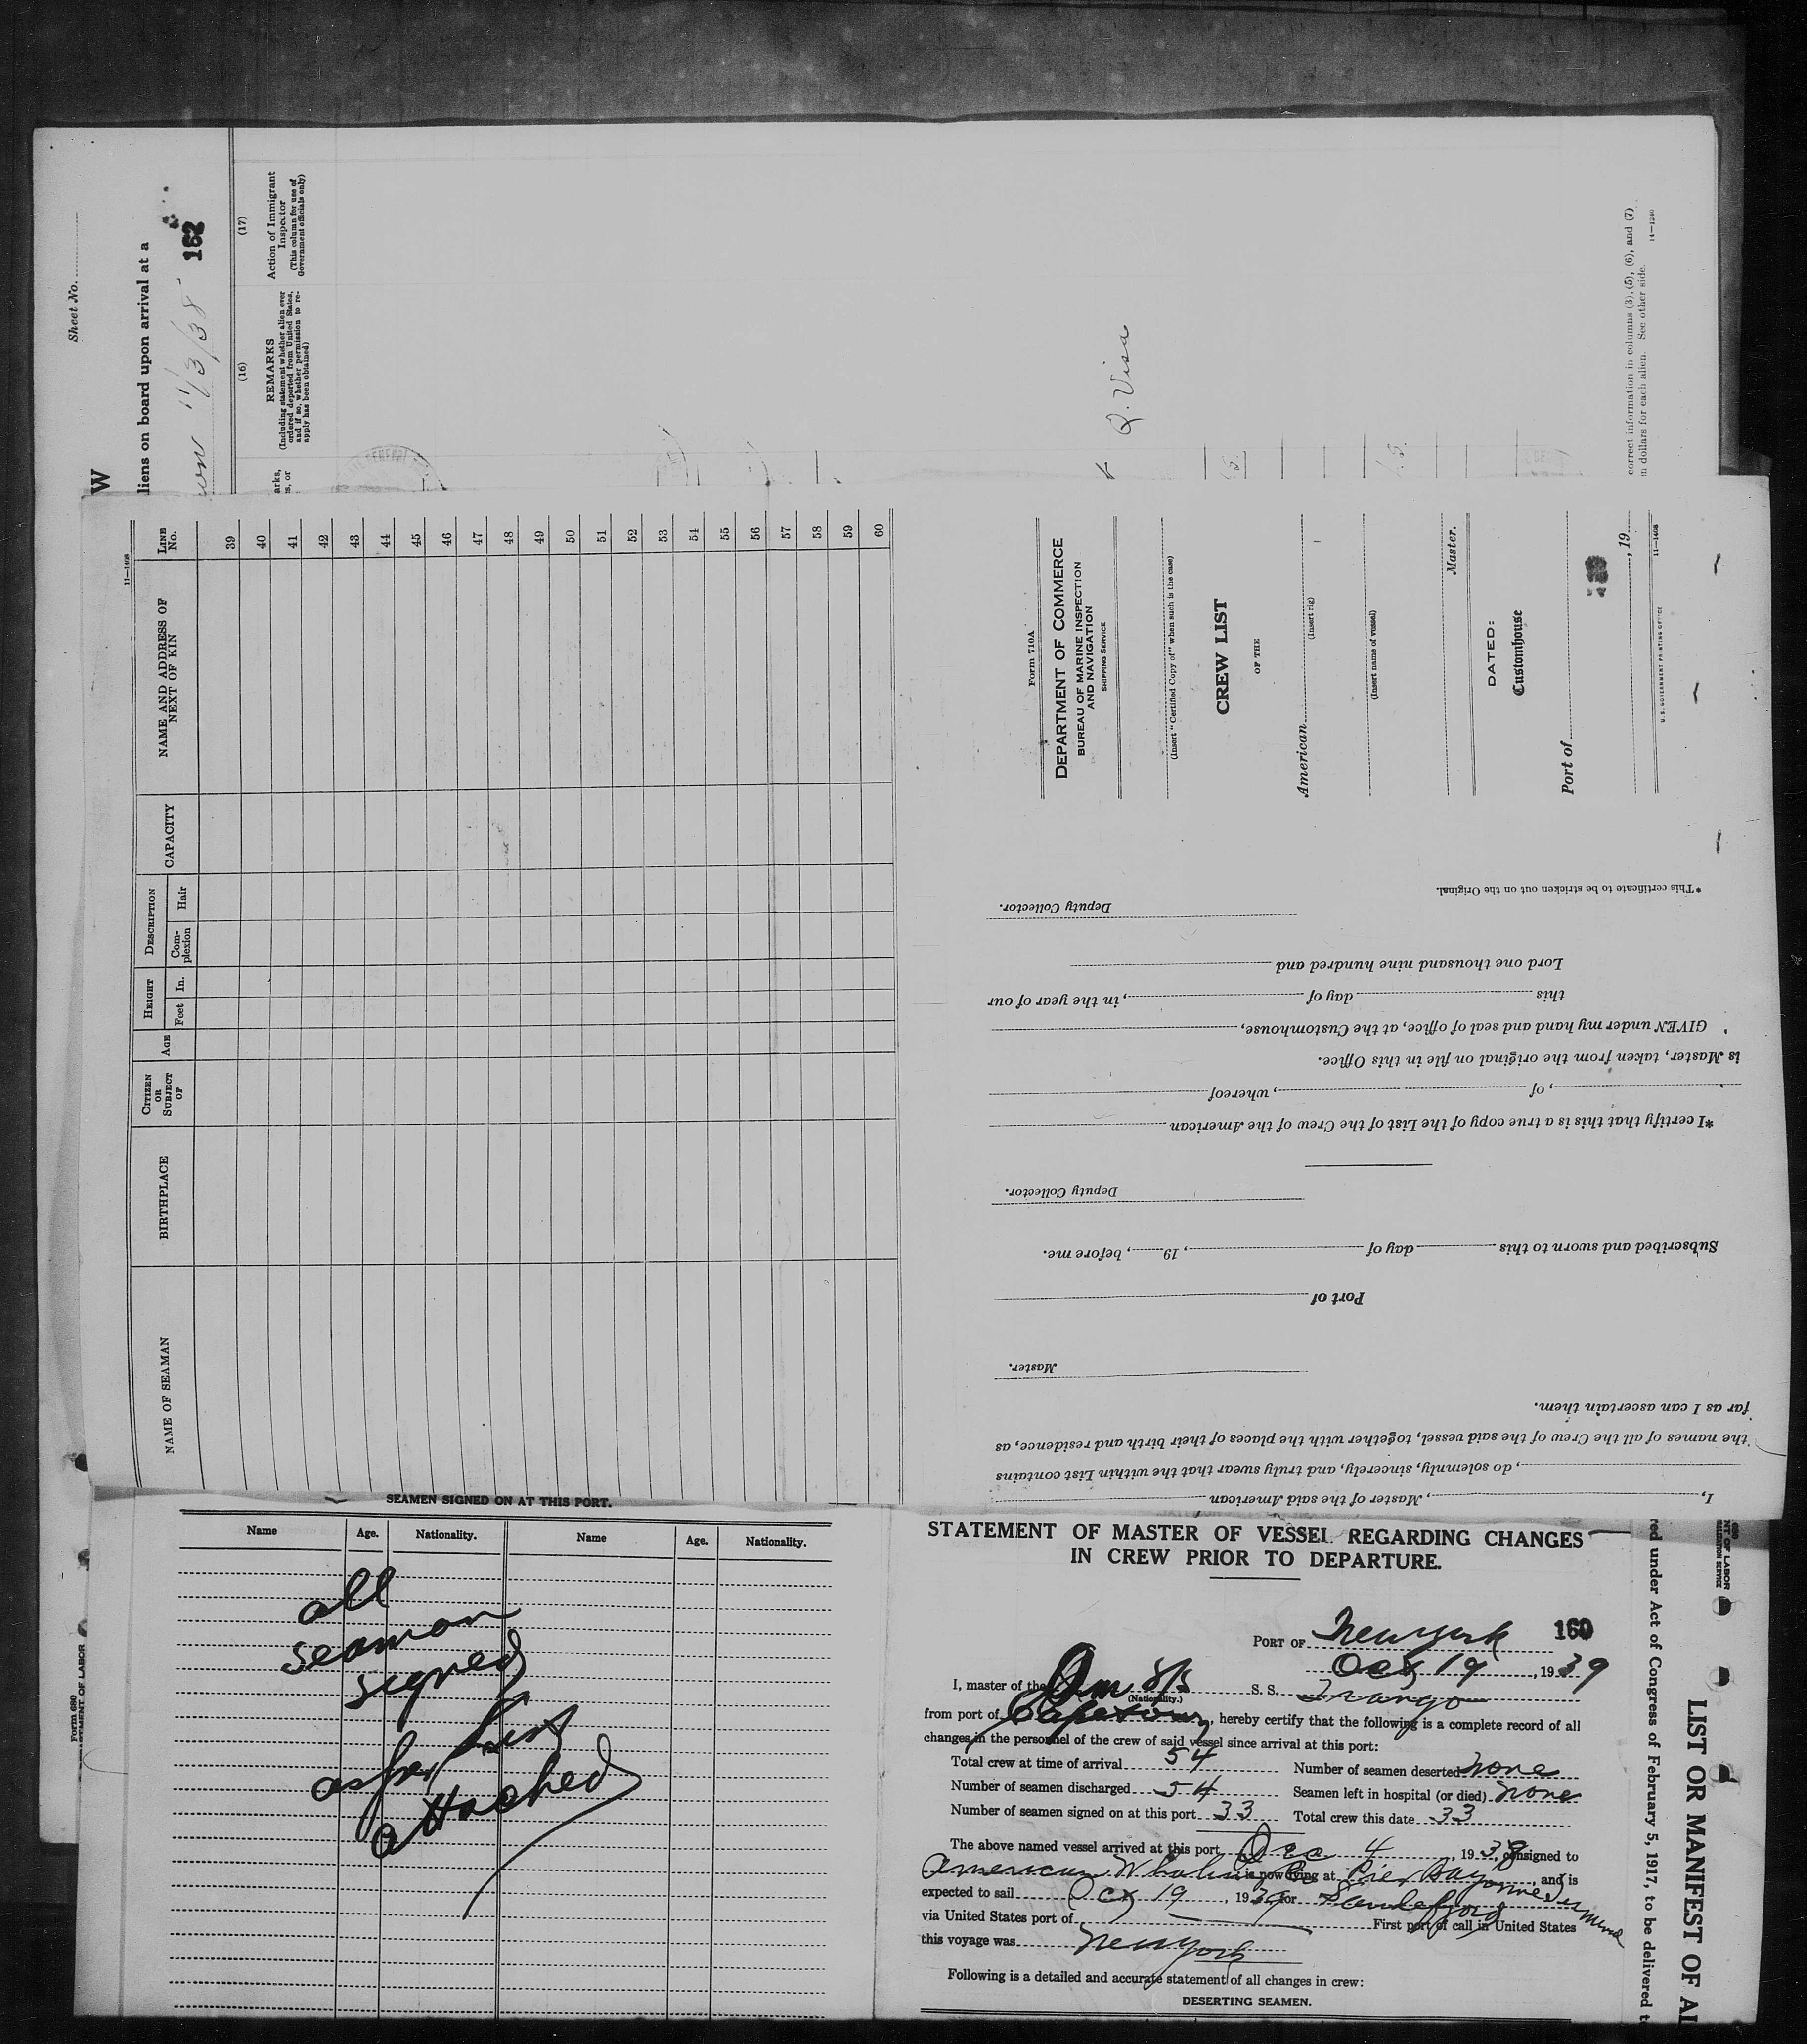 Sheet No.
W
liens on board upon arrival at a
11/3/38
162
(16)
REMARKS
(Including statement whether alien ever
ordered deported from United States,
and if so, whether permission to re-
apply has been obtained)
(17)
Action of Immigrant
Inspector
(This column for use of
Government officials only)
arks,
s, or
Q. Visa
correct information in columns (3), (5), (6), and (7)
in dollars for each alien. See other side.
11—1240
11—1408
NAME OF SEAMAN
BIRTHPLACE
CITIZEN
OR
SUBJECT
OF
AGE
HEIGHT
Feet In.
DESCRIPTION
Com-
plexion
Hair
CAPACITY
NAME AND ADDRESS OF
NEXT OF KIN
LINE
No.
39
40
41
42
43
44
45
46
47
48
49
50
51
52
53
54
55
56
57
58
59
60
Form 710A
DEPARTMENT OF COMMERCE
BUREAU OF MARINE INSPECTION
AND NAVIGATION
SHIPPING SERVICE
(Insert "Certified Copy of" when such is the case)
CREW LIST
OF THE
American
(Insert rig)
(Insert name of vessel)
Master.
DATED:
Customhouse
Port of
, 19
U.S. GOVERNMENT PRINTING OFFICE
11—1408
I, , Master of the said American
, do solemnly, sincerely, and truly swear that the within List contains
the names of all the Crew of the said vessel, together with the places of their birth and residence, as
far as I can ascertain them.
Master.
Port of
Subscribed and sworn to this day of , 19 , before me.
Deputy Collector.
*I certify that this is a true copy of the List of the Crew of the American
, of , whereof
is Master, taken from the original on file in this Office.
GIVEN under my hand and seal of office, at the Customhouse,
this day of , in the year of our
Lord one thousand nine hundred and
Deputy Collector.
*This certificate to be stricken out on the Original.
SEAMEN SIGNED ON AT THIS PORT.
Name Age. Nationality. Name Age. Nationality.
all
seamen
signed
as per list
attached
Form 680
STATEMENT OF MASTER OF VESSEL REGARDING CHANGES
IN CREW PRIOR TO DEPARTURE.
PORT OF New York 160
Oct 19, 1939
I, master of the Am S/S S. S. Frango
(Nationality.)
from port of Capetown, hereby certify that the following is a complete record of all
changes in the personnel of the crew of said vessel since arrival at this port:
Total crew at time of arrival 54 Number of seamen deserted none
Number of seamen discharged 54 Seamen left in hospital (or died) none
Number of seamen signed on at this port 33 Total crew this date 33
The above named vessel arrived at this port Dec 4, 1938, consigned to
American Whaling Co is now lying at Pier Bayonne, and is
expected to sail Oct 19, 1939 for Sandefjord
via United States port of First port of call in United States
this voyage was New York
Following is a detailed and accurate statement of all changes in crew:
DESERTING SEAMEN.
LIST OR MANIFEST OF AL
red under Act of Congress of February 5, 1917, to be delivered t
NT OF LABOR